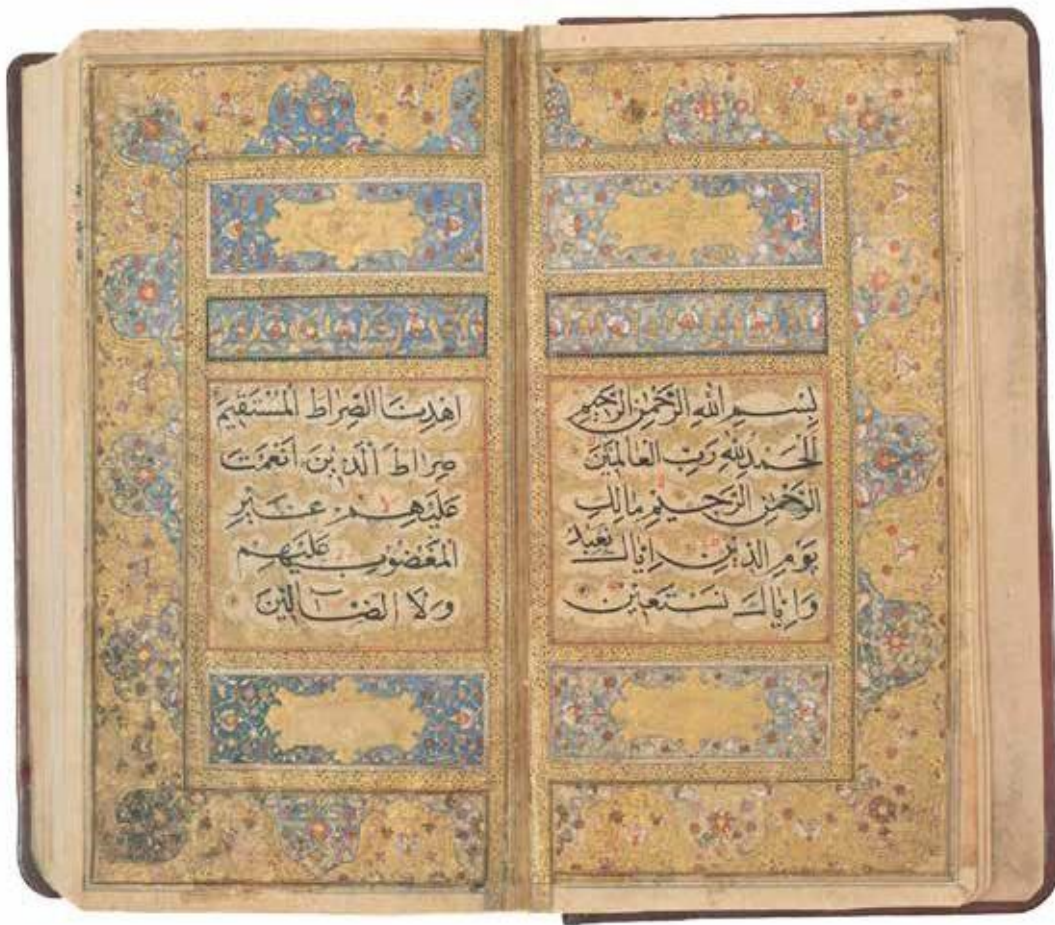 بِسْمِ اللهِ الرَّحْمٰنِ الرَّحِيمِ
اَلْحَمْدُ لِلّٰهِ رَبِّ الْعَالَمِينَ
الرَّحْمٰنِ الرَّحِيمِ مَالِكِ
يَوْمِ الدِّينِ اِيَّاكَ نَعْبُدُ
وَاِيَّاكَ نَسْتَعِينُ
اِهْدِنَا الصِّرَاطَ الْمُسْتَقِيمَ
صِرَاطَ الَّذِينَ اَنْعَمْتَ
عَلَيْهِمْ غَيْرِ
الْمَغْضُوبِ عَلَيْهِمْ
وَلَا الضَّآلِّينَ